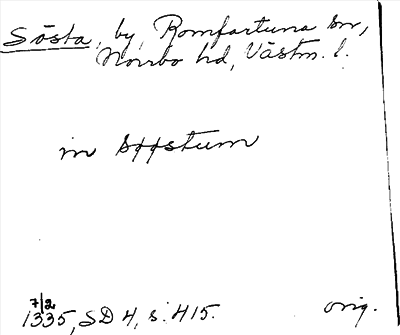 Sösta, by, Romfartuna sn,
Norrbo hd, Västm. l.
in Søøstum
7/2
1335, SD 4, s. 415. orig.